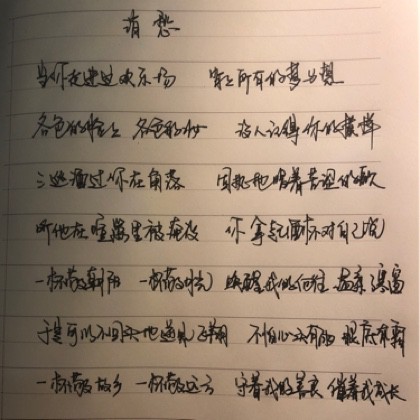 消愁
当你走进这欢乐场 背上所有的梦与想
各色的脸上 各色的妆 没人记得你的模样
三巡酒过你在角落 固执地唱着苦涩的歌
听他在喧嚣里被淹没 你拿起酒杯对自己说
一杯敬朝阳 一杯敬月光 唤醒我的向往 温柔了寒窗
于是可以不回头地逆风飞翔 不怕心头有雨 眼底有霜
一杯敬故乡 一杯敬远方 守着我的善良 催着我成长